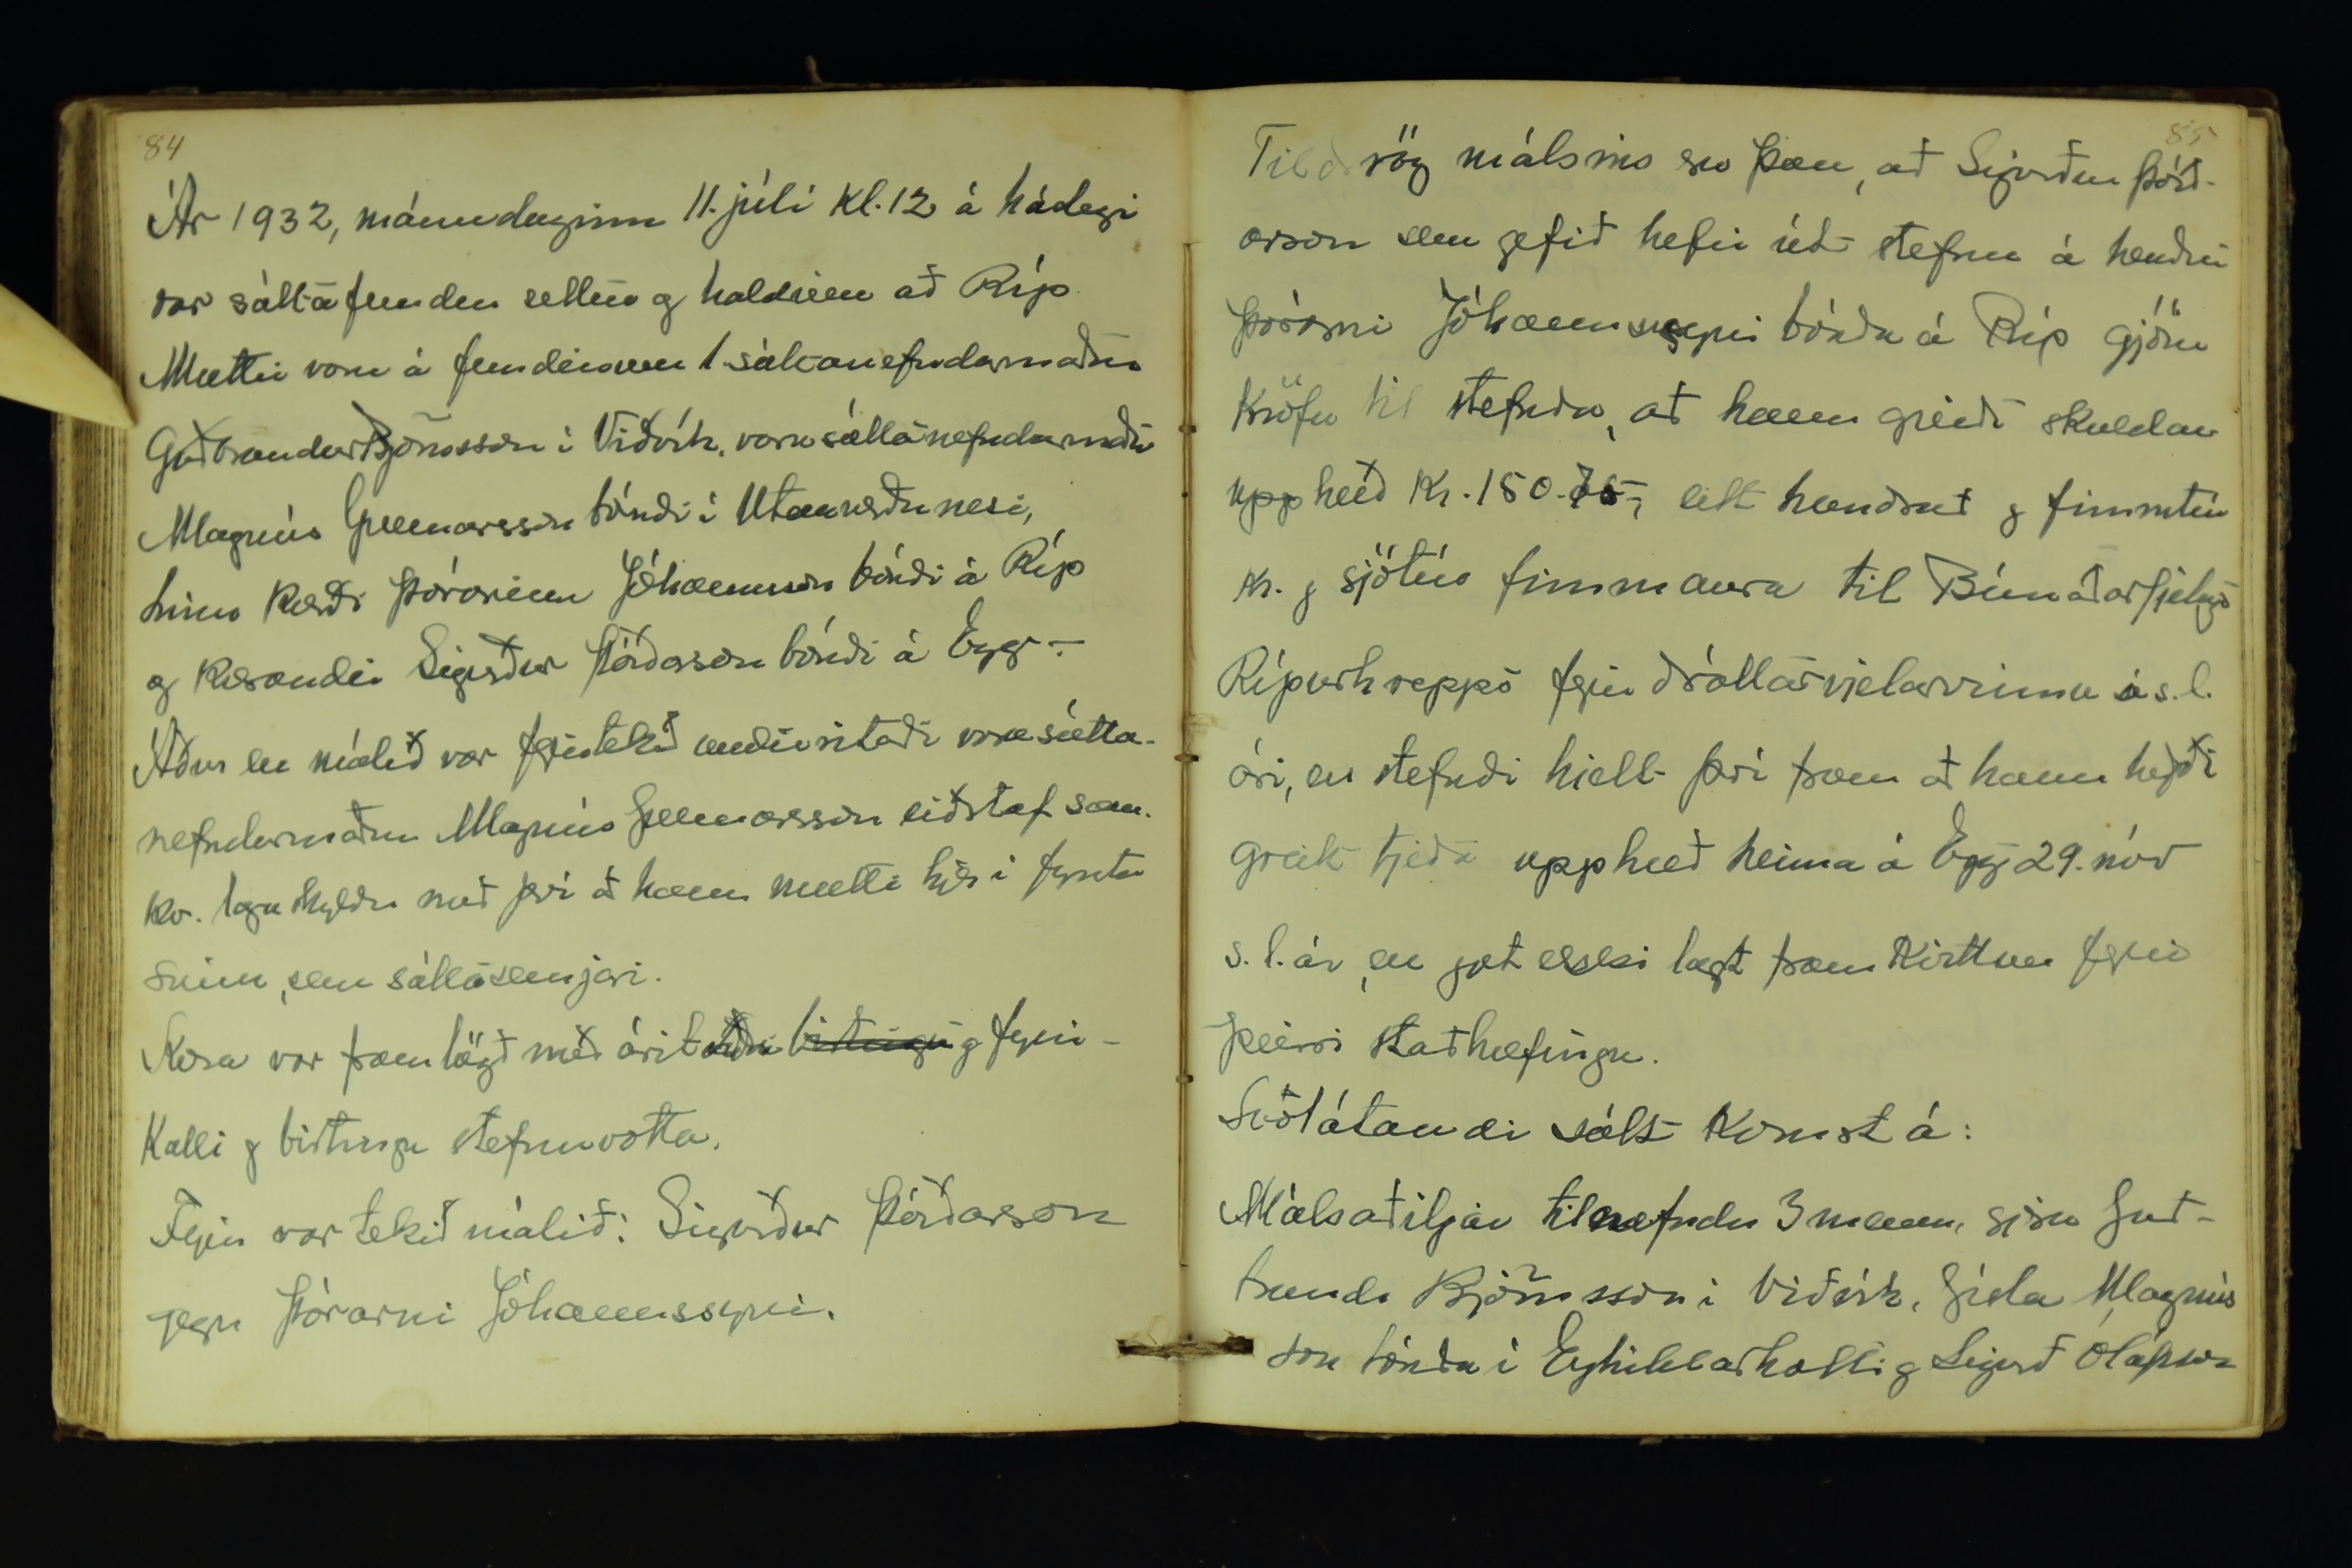 84
Ár 1932, mánudaginn 11. júlí Kl. 12 á hádegi
var sáttafundur settur og haldinn að Ríp
Mættir voru á fundinum 1. sáttanefndarmaður
Guðbrandur Björnsson í Viðvík, vara sáttanefndarmaður
Magnús Gunnarsson bóndi í Utanverðunesi,
hinn kærði Þórarinn Jóhannsson bóndi á Ríp
og kærandi Sigurður Þórðarson bóndi á Egg.-
Áður en málið var fyrirtekið undirritaði vara sátta-
nefndarmaður Magnús Gunnarsson eiðstaf sam-
kv. laga skyldu með því að hann mætti hjer í fyrsta
sinn, sem sáttasemjari.
Kæra var framlögð með árituðu birtingu og fyrir-
kalli og birtingu stefnuvotta.
Fyrir var tekið málið: Sigurður Þórðarson
gegn Þórarni Jóhannssyni.
85
Tildrög málsins eru þau, að Sigurður Þórð-
arson sem gefið hefir út stefnu á hendur
Þórarni Jóhannssyni bónda á Ríp gjörir
kröfu til stefnda, að hann greiði skuldar
upphæð Kr. 150.75, eitt hundrað og fimmtíu
kr. og sjötíu fimm aura til Búnaðarfjelags
Rípurhrepps fyrir dráttarvjelarvinnu á s.l.
ári, en stefndi hjelt því fram að hann hefði
greitt tjeða upphæð heima á Egg 29. nóv
s.l. ár, en gat ekki lagt fram kvittun fyrir
þeirri staðhæfingu.
Svolátandi sátt komst á:
Málsaðiljar tilnefndu 3 menn, sjera Guð-
brand Björnsson í Viðvík, Gísla Magnús
son bónda í Eyhildarholti og Sigurð Ólafsson